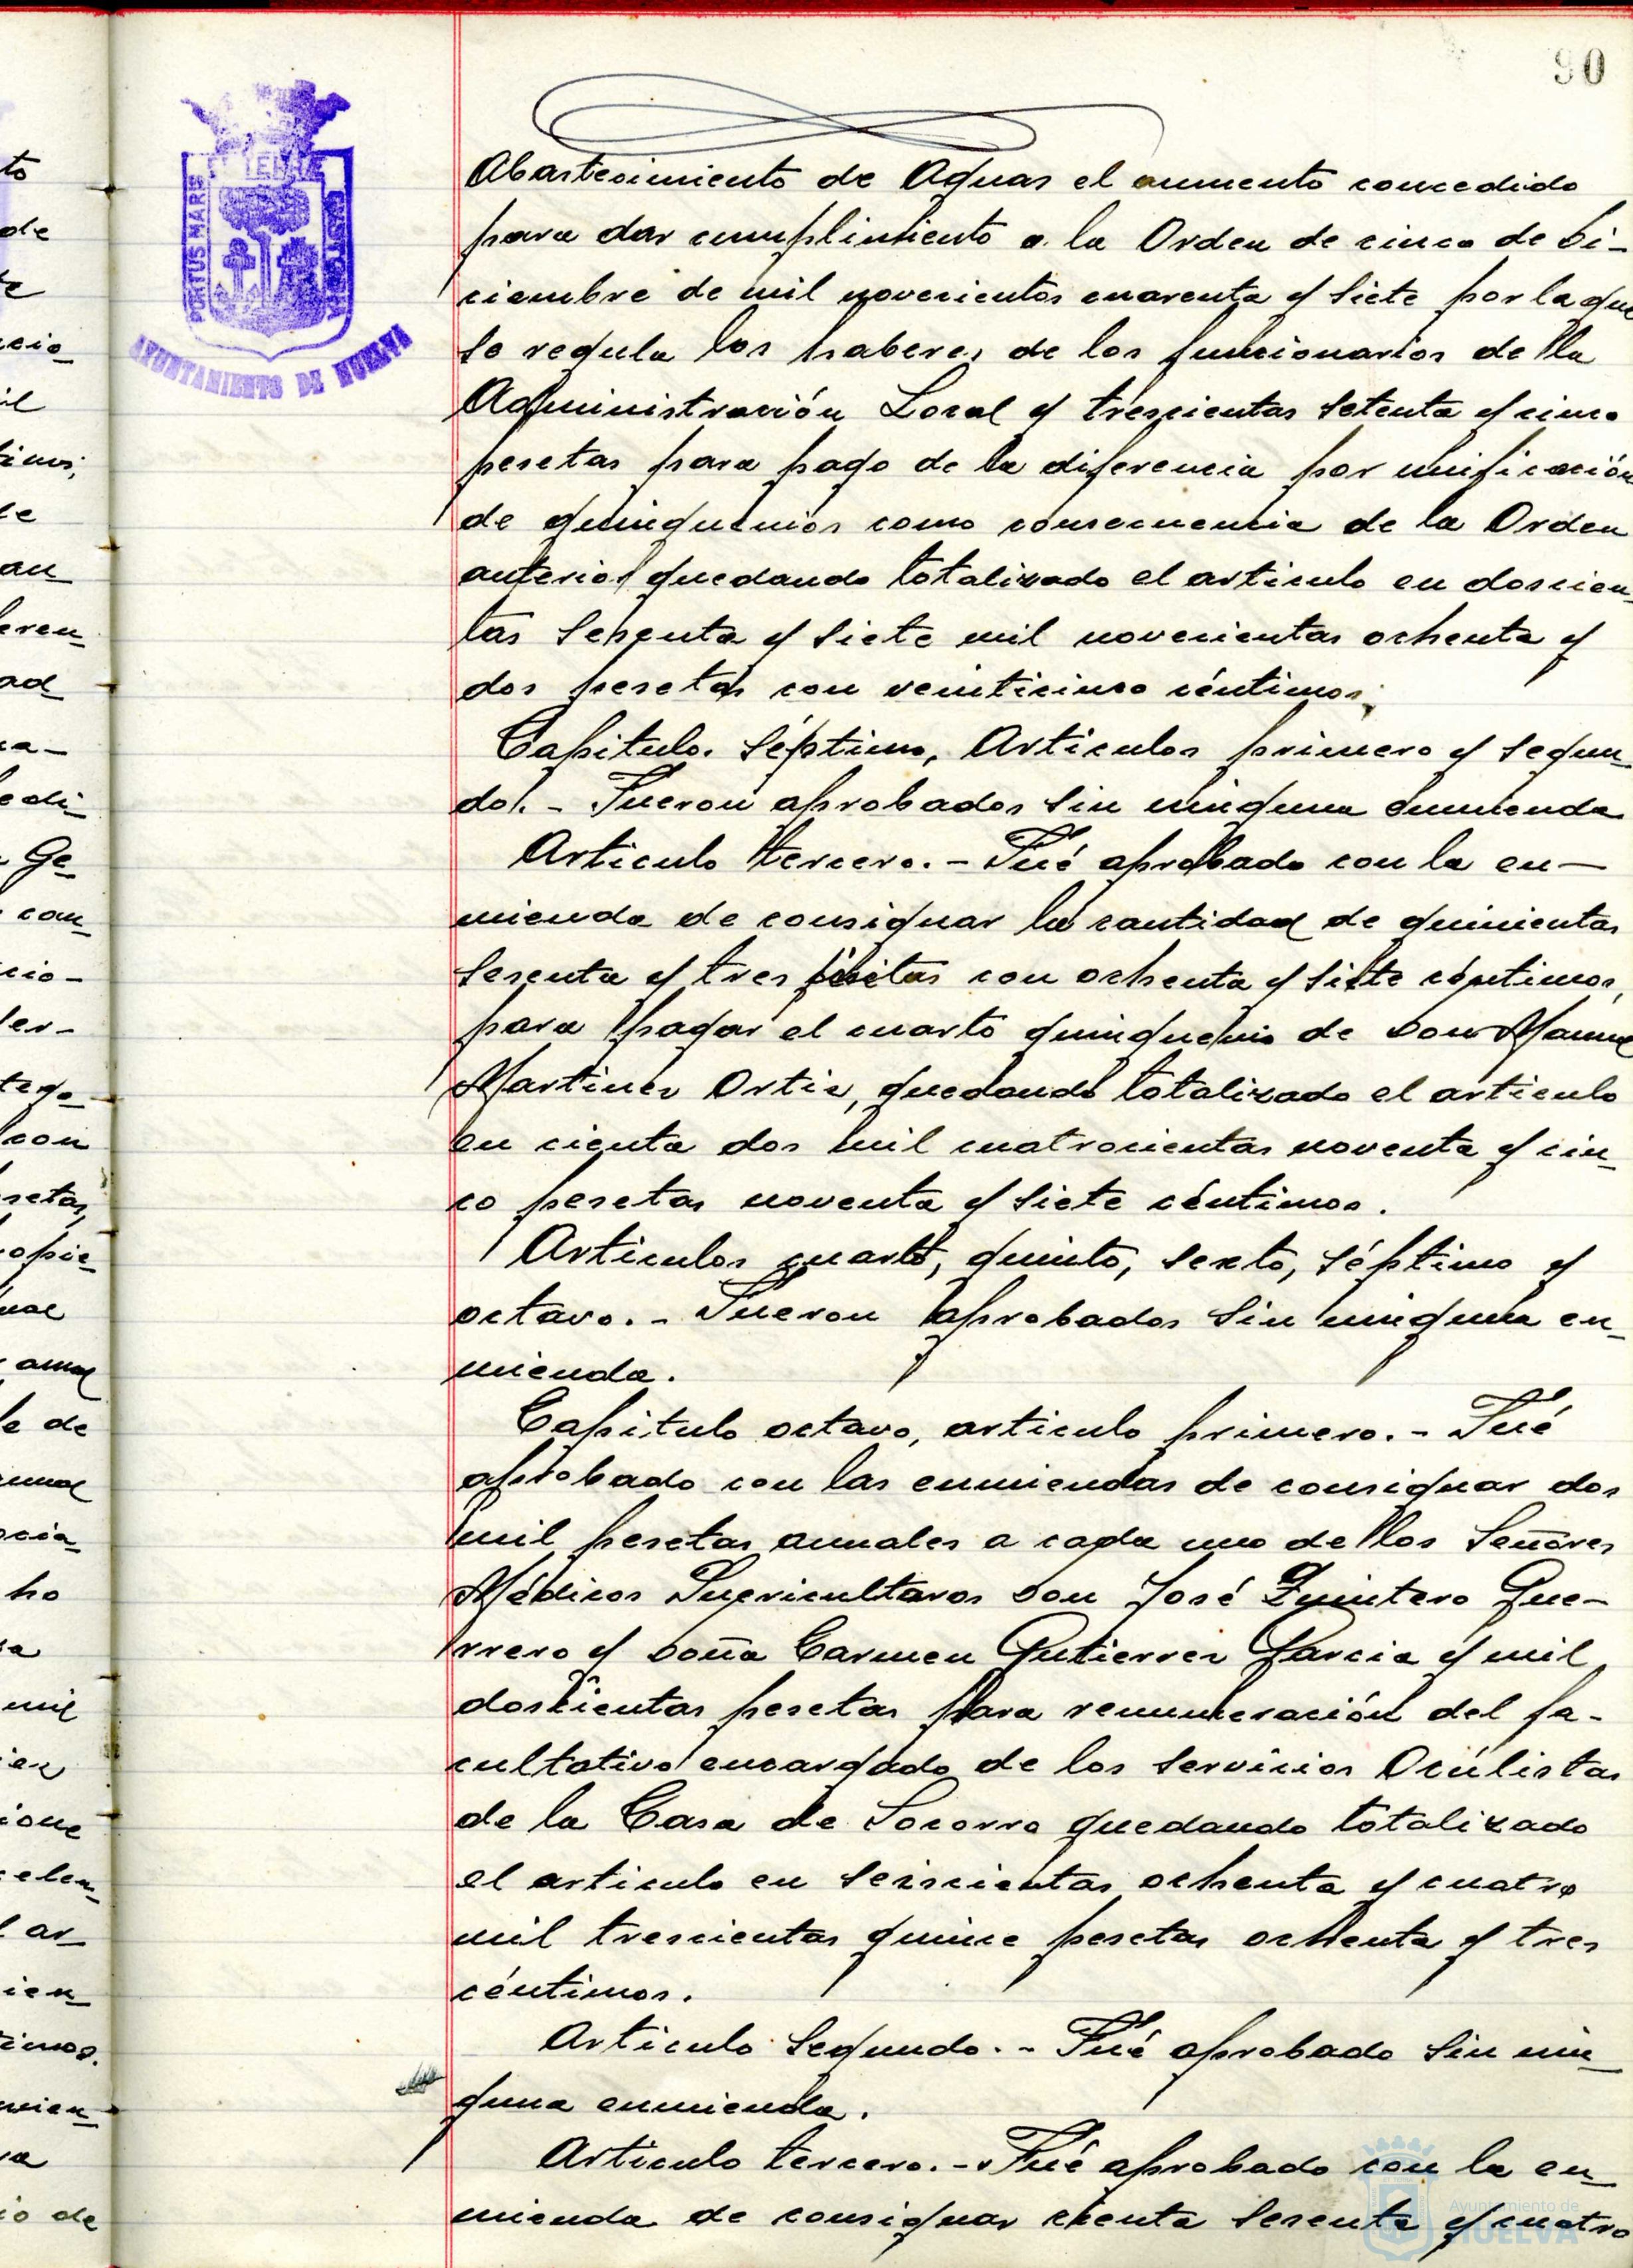 90
PORTUS MARIS
ET TERRAE
CUSTODIA
AYUNTAMIENTO DE HUELVA
Abastecimiento de Aguas el aumento concedido
para dar cumplimiento a la Orden de cinco de Di-
ciembre de mil novecientos cuarenta y siete por la que
se regula los haberes de los funcionarios de la
Administración Local y trescientas setenta y cinco
pesetas para pago de la diferencia por unificación
de quinquenios como consecuencia de la Orden
anterior quedando totalizado el articulo en doscien-
tas sesenta y siete mil novecientas ochenta y
dos pesetas con veinticinco céntimos.
Capitulo Séptimo, Articulos primero y segun-
do. - Fueron aprobados sin ninguna enmienda
Articulo tercero. - Fué aprobado con la en-
mienda de consignar la cantidad de quinientas
sesenta y tres pesetas con ochenta y siete céntimos,
para pagar el cuarto quinquenio de Don Manuel
Martinez Ortiz, quedando totalizado el articulo
en cienta dos mil cuatrocientas noventa y cin-
co pesetas noventa y siete céntimos.
Articulos cuarto, quinto, sexto, séptimo y
octavo. - Fueron aprobados sin ninguna en-
mienda.
Capitulo octavo, articulo primero. - Fué
aprobado con las enmiendas de consignar dos
mil pesetas anuales a cada uno de los Señores
Médicos Puericultores Don José Quintero Gue-
rrero y Doña Carmen Gutierrez Garcia y mil
doscientas pesetas para remuneración del fa-
cultativo encargado de los servicios Oculistas
de la Casa de Socorro quedando totalizado
el articulo en seiscientas ochenta y cuatro
mil trescientas quince pesetas ochenta y tres
céntimos.
Articulo Segundo. - Fué aprobado sin nin-
guna enmienda.
Articulo tercero. - Fué aprobado con la en-
mienda de consignar cienta sesenta y cuatro
Ayuntamiento de
HUELVA